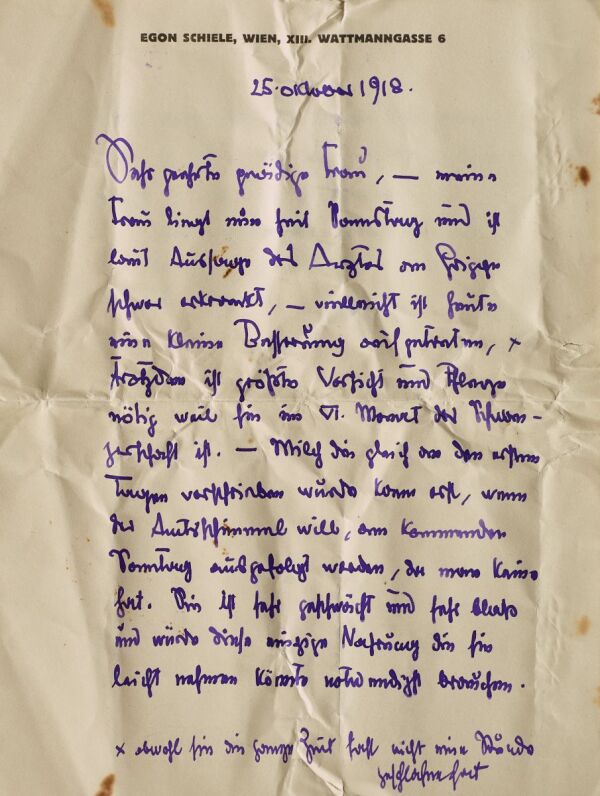 EGON SCHIELE, WIEN, XIII. WATTMANNGASSE 6
25. oktober 1918.
Sehr geehrte gnädige Frau, — meine
Frau liegt nun seit Sonnstag und ist
laut Aussage des Arztes an Grippe
schwer erkrankt, — vielleicht ist heute
eine kleine Besserung aufgetreten, ×
trotzdem ist größte Vorsicht und Pflege
nötig weil sie im VI. Monat der Schwan-
gerschaft ist. — Milch die gleich an den ersten
Tagen verschrieben wurde kann erst, wenn
der Amtsschimmel will, am kommenden
Sonntag ausgefolgt werden, da man keine
hat. Sie ist sehr geschwächt und sehr blaß
und würde diese einzige Nahrung die sie
leicht nehmen könnte notwendigst brauchen.
× obwohl sie die ganze Zeit fast nicht eine Stunde
geschlafen hat